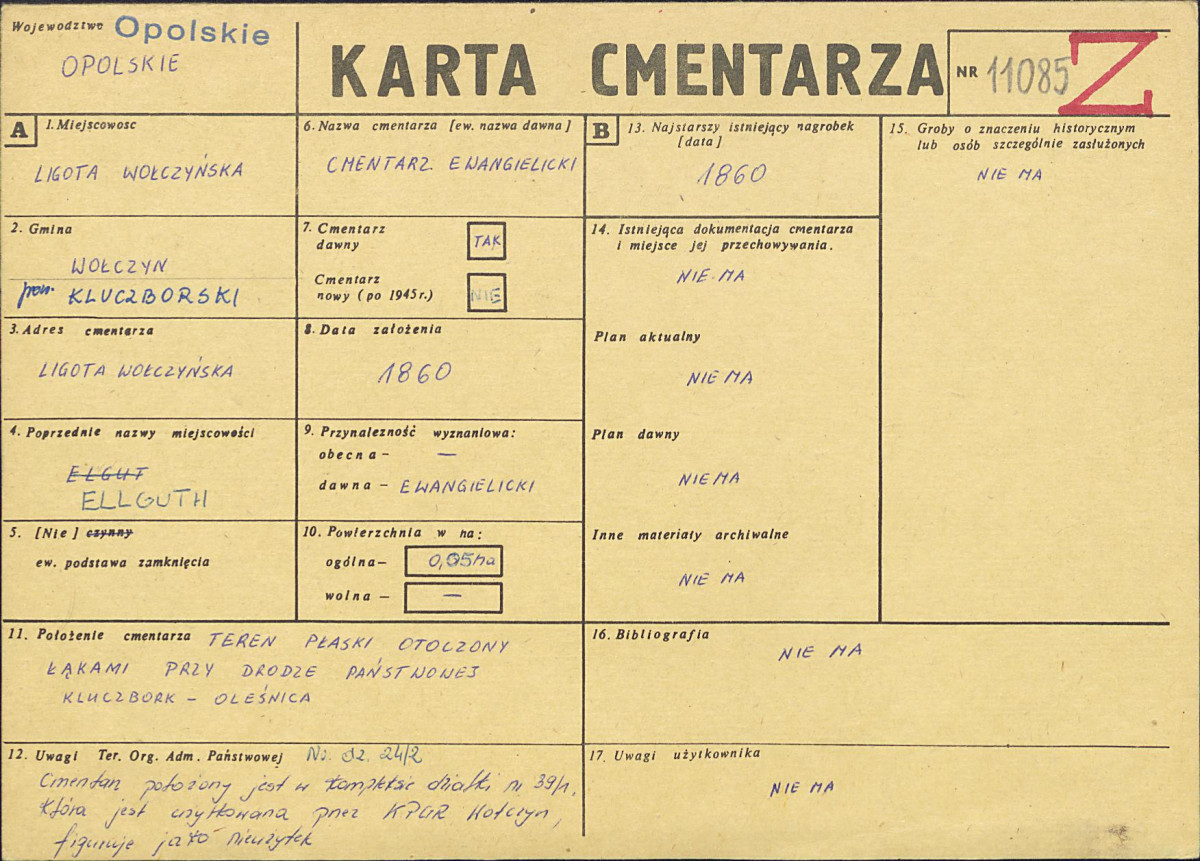 Województwo Opolskie
OPOLSKIE
KARTA CMENTARZA
NR 11085 Z
A
1. Miejscowosc
LIGOTA WOŁCZYŃSKA
2. Gmina
WOŁCZYN
pow. KLUCZBORSKI
3. Adres cmentarza
LIGOTA WOŁCZYŃSKA
4. Poprzednie nazwy miejscowości
ELGUT
ELLGUTH
5. [Nie] czynny
ew. podstawa zamknięcia
6. Nazwa cmentarza [ew. nazwa dawna]
CMENTARZ EWANGIELICKI
7. Cmentarz
dawny
TAK
Cmentarz
nowy (po 1945 r.)
NIE
8. Data założenia
1860
9. Przynależność wyznaniowa:
obecna – —
dawna – EWANGIELICKI
10. Powierzchnia w ha:
ogólna – 0,05 ha
wolna – —
11. Położenie cmentarza TEREN PŁASKI OTOCZONY
ŁĄKAMI PRZY DRODZE PAŃSTWOWEJ
KLUCZBORK – OLEŚNICA
12. Uwagi Ter. Org. Adm. Państwowej Nr. dz. 24/2
Cmentarz położony jest w kompleksie działki nr 39/1,
która jest użytkowana przez KPGR Wołczyn,
figuruje jako nieużytek
B
13. Najstarszy istniejący nagrobek
[data]
1860
14. Istniejąca dokumentacja cmentarza
i miejsce jej przechowywania.
NIE MA
Plan aktualny
NIE MA
Plan dawny
NIE MA
Inne materiały archiwalne
NIE MA
15. Groby o znaczeniu historycznym
lub osób szczególnie zasłużonych
NIE MA
16. Bibliografia
NIE MA
17. Uwagi użytkownika
NIE MA